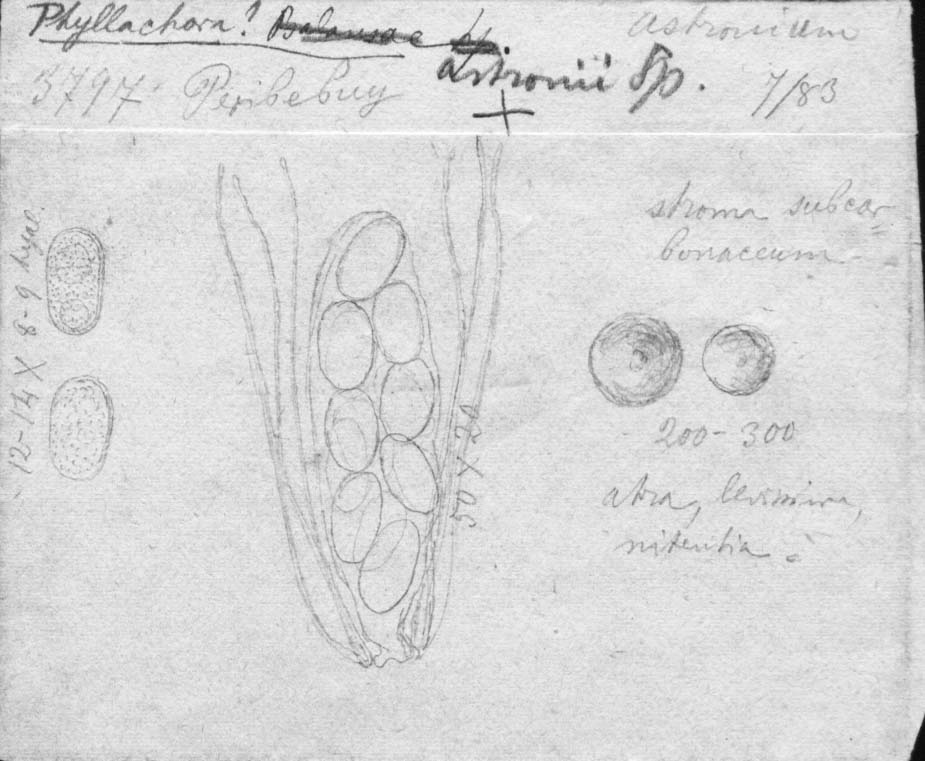 Phyllachora? Balansae Sp. Astronium
Astronii Sp.
3797 Peribebuy 7/83
stroma subcar-
bonaceum -
12-14 X 8-9 hyal.
50 X 20
200-300
atra, levissima,
nitentia